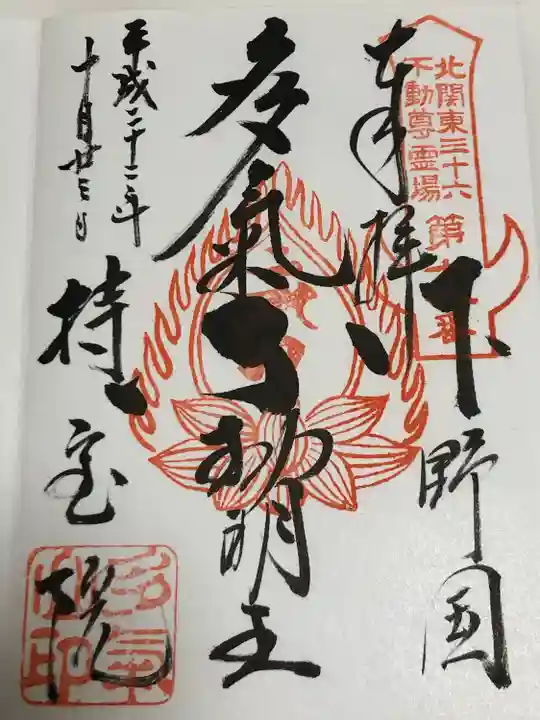 北関東三十六
不動尊霊場
第十八番
奉拝
下野国
多氣不動明王
平成二十二年
十月廿三日
持宝院